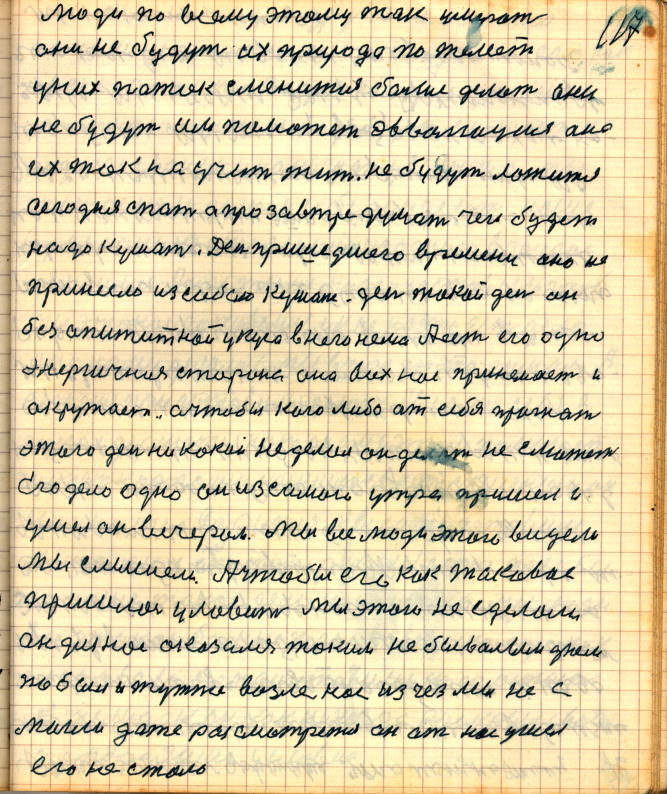 117
люди по всему этому так умират
они не будут их природа пожелеет
уних паток сменится болие делат они
не будут им поможет эвалюция ана
их так научит жит. не будут ложится
сегодня спат а про завтре думат чего будет
надо кушат. Ден пришедшего времени оно не
принесло изсобою кушат. ден такой ден он
без апититной укуса внего нема А ест его одно
энергичная сторона она всих нас принемает и
окружает.. ачтобы кого либо от себя прогнат
этого ден никокой неделал он делат не сможет
Его дело одно он из самого утра пришел и
ушел он вечером. мы все люди этого видели
мы слышели. Ачтобы его как такавое
пришлос уловит мы этого не сделали
он для нас оказался таким не бывалым днем
побыл и тутже возле нас изчез мы не с
могли даже расмотрется он от нас ушел
его не стало